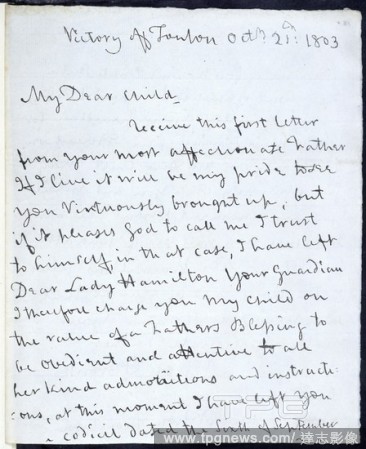 Victory off Toulon Octr. 21st: 1803
My Dear Child
receive this first letter
from your most affectionate Father
If I live it will be my pride to see
you virtuously brought up, but
if it pleases God to call me I trust
to himself, in that case, I have left
Dear Lady Hamilton Your Guardian
I therefore charge you My Child on
the value of a Fathers Blessing to
be obedient and attentive to all
her kind admonitions and instructi
:ons, at this moment I have left you
a codicil dated the Sixth of September
TPG
www.tpgnews.com/達志影像